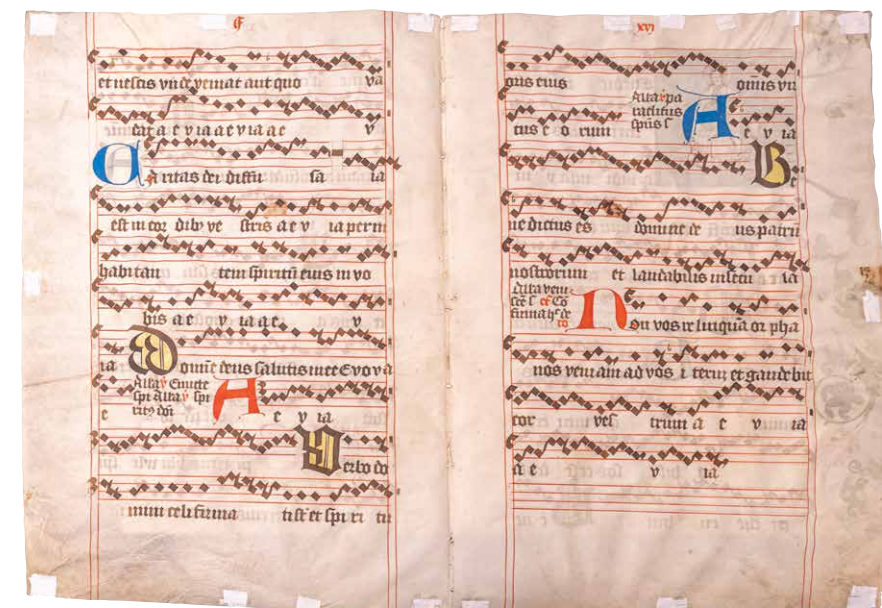 et nescis unde veniat aut quo va
dat a e v ia a e v ia a e v
Caritas dei diffu sa ia
est in cor dibꝰ ve stris a e v ia per in
habitan tem spiritū eius in vo
bis a e v ia a e v
ia Domīe deus salutis mee Evova
Alla ℣ Emitte
spī Alla ℣ spi
ritꝰ dn̄i
A e v ia
e
Verbo do
mini celi firma ti sūt et spi ri tu
xvi
oris eius omnis vir
Alla ℣ pa
raclitus
spūs s
tus e o rum A e v ia
Be
ne dictus es domine de us patrū
nostrorum et laudabilis in secu la
Alla veni
scē s et Co
firma hͦ de
co
Non vos re linquā or pha
nos veniam ad vos i terū et gaudebit
cor ves trum a e v ia
a e v ia